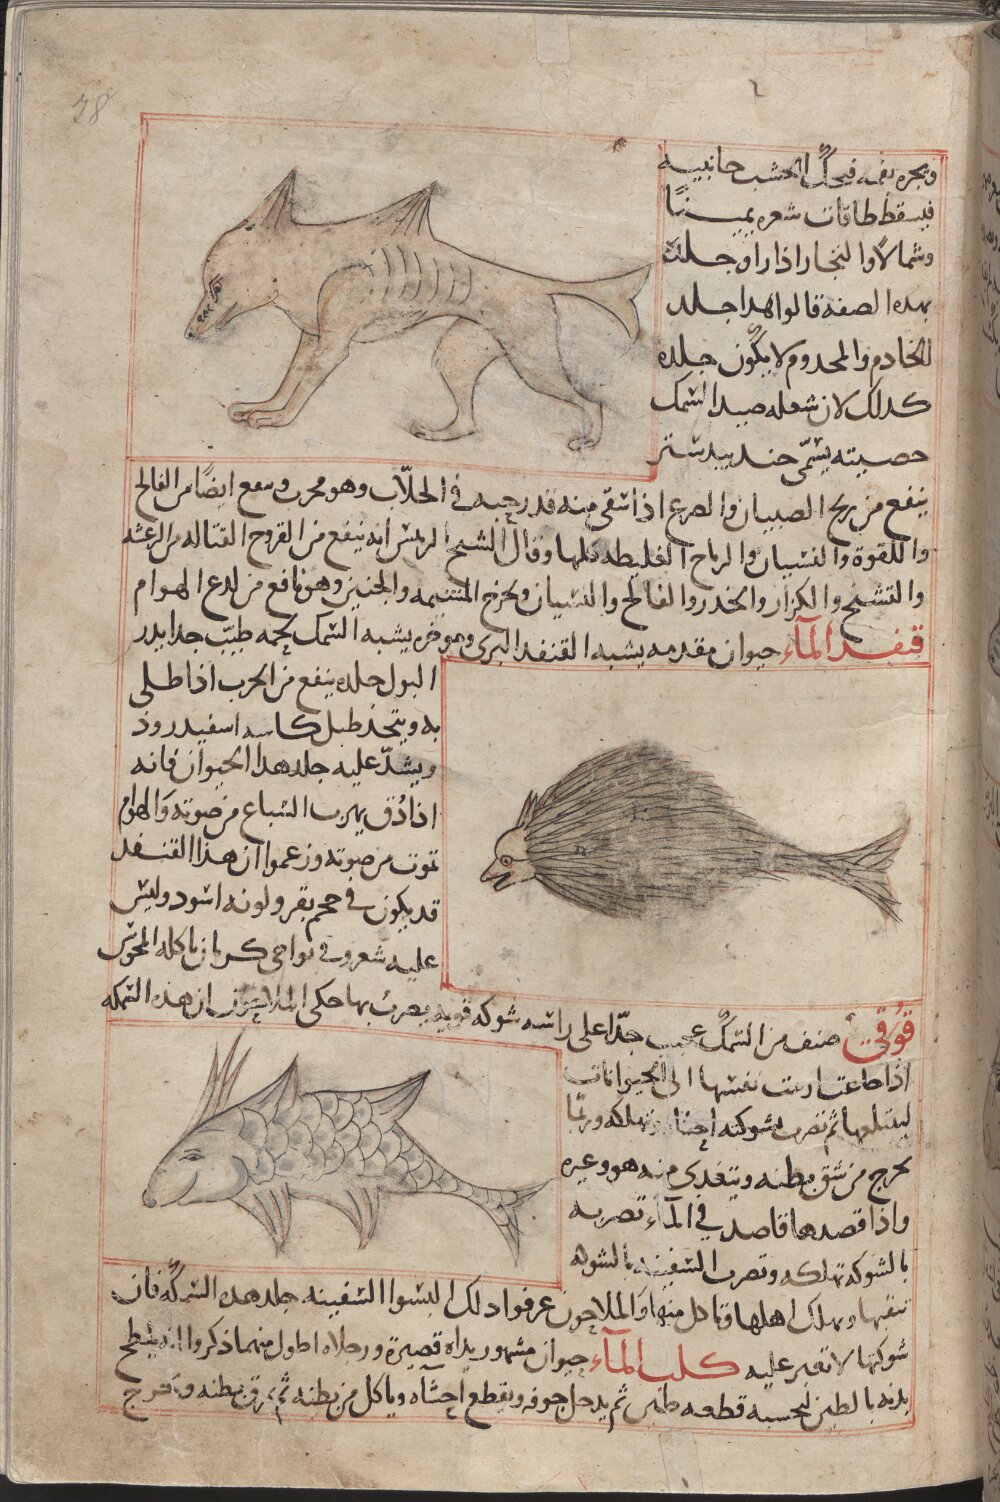 78
ويجره بفمه فيحك الخشب جانبيه
فيسقط طاقات شعره يمينا
وشمالا والتجار اذا راو جلده
بهده الصفه قالوا هدا جلد
الخادم والمخدوم لا يكون جلده
كدلك لان شعله صيد السمك
خصيته يسمى جند بيدستر
ينفع من ريح الصبيان والصرع اذا سقى منه قدر حبه في الجلاب وهو مجرب وينفع ايضا من الفالج
واللقوة والنسيان والرياح الغليطه كلها وقال الشيخ الرييس انه ينفع من القروح القتاله من الرعشه
والتشنج والكزاز والخدر والفالج والنسيان ويخرج المشيمه والجنين وهو نافع من لدع الهوام
قنفد المآء حيوان مقدمه يشبه القنفد البرى وموخره يشبه السمك لحمه طيب جدا يدر
البول جلده ينفع من الجرب اذا طلى
به ويتخذ طبل كاسه اسفيدروذ
ويشد عليه جلد هدا الحيوان فانه
اذا دق يهرب السباع من صوته والهوام
تموت من صوته وزعموا ان هذا القنفد
قد يكون في حجم بقر ولونه اسود وليس
عليه شعر وفي نواحي كرمان ياكله المجوس
قوقى صنف من السمك عجيب جدا على راسه شوكه قويه يضرب بها حكى الملاحون ان هذه السمكه
اذا جاعت ارمت نفسها الى الحيوانات
ليبتلعها ثم تضرب بشوكته احشاه وتهلكه وربما
يخرج من شق بطنه ويتغدى منه هو وغيره
واذا قصدها قاصد في المآء تضربه
بالشوكه تهلكه وتضرب السفينه بالشوكه
تنقبها ويهلك اهلها وتاكل منها والملاحون عرفوا دلك البسوا السفينه جلد هده السمكه فان
شوكتها لا تعبر عليه كلب المآء حيوان مشهور يداه قصيرة ورجلاه اطول منهما ذكروا انه يلطخ
بدنه بالطين ليحسبه قطعه طين ثم يدخل جوفه ويقطع احشاه وياكل من بطنه ثم يمزق بطنه ويخرج